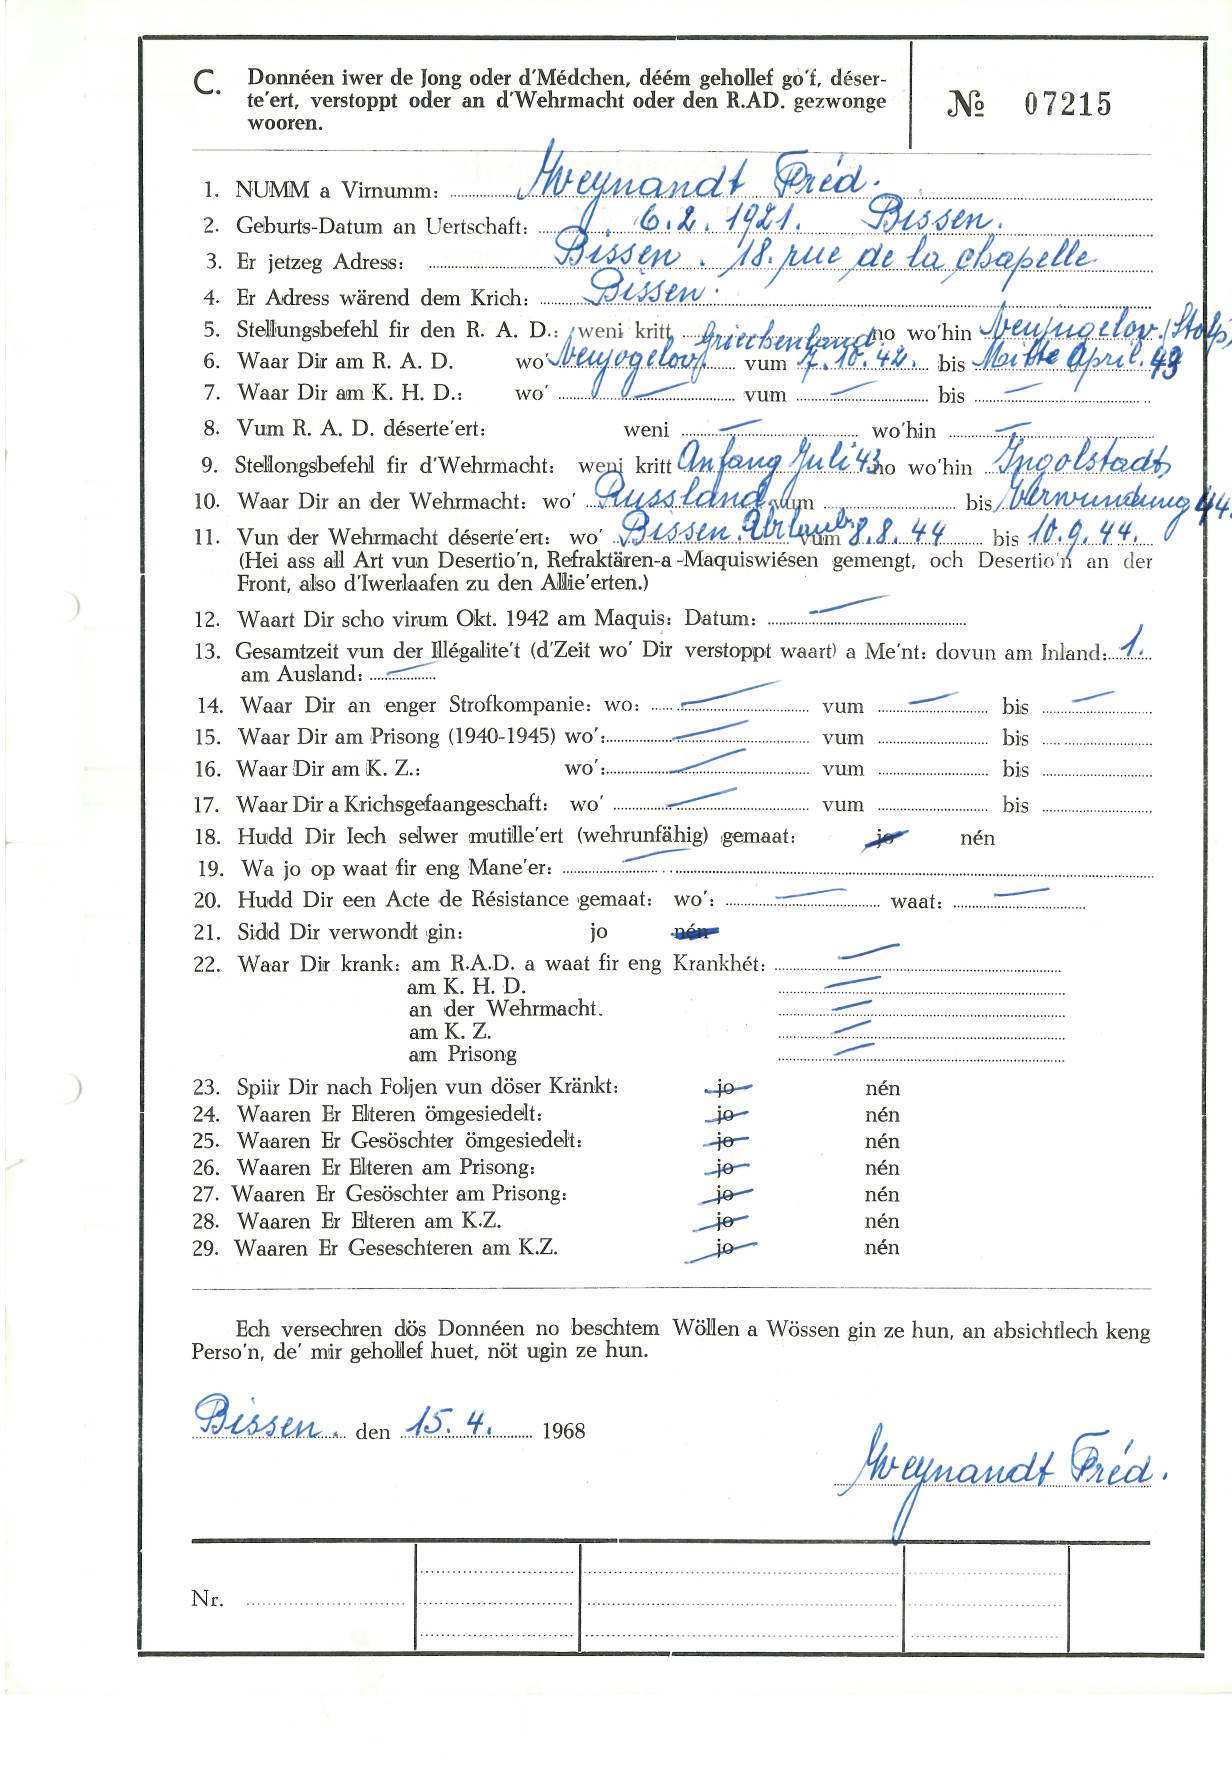 C. Donnéen iwer de Jong oder d'Médchen, déém gehollef go'f, déser-
te'ert, verstoppt oder an d'Wehrmacht oder den R.AD. gezwonge
wooren.
№ 07215
1. NUMM a Virnumm: Weynandt Fréd.
2. Geburts-Datum an Uertschaft: 6.2.1921. Bissen.
3. Er jetzeg Adress: Bissen. 18. rue de la chapelle
4. Er Adress wärend dem Krich: Bissen.
5. Stellungsbefehl fir den R. A. D.: weni kritt Griechenland no wo'hin Neujugelov. (Stolp)
6. Waar Dir am R. A. D. wo' Neujogelov. vum 7.10.42. bis Mitte April. 43
7. Waar Dir am K. H. D.: wo' — vum — bis —
8. Vum R. A. D. déserte'ert: weni — wo'hin —
9. Stellongsbefehl fir d'Wehrmacht: weni kritt Anfang Juli 43 no wo'hin Ingolstadt
10. Waar Dir an der Wehrmacht: wo' Russland vum bis Verwundung 44.
11. Vun der Wehrmacht déserte'ert: wo' Bissen. Urlaub vum 8.8.44 bis 10.9.44.
(Hei ass all Art vun Desertio'n, Refraktären-a-Maquiswiésen gemengt, och Desertio'n an der
Front, also d'Iwerlaafen zu den Allie'erten.)
12. Waart Dir scho virum Okt. 1942 am Maquis: Datum: —
13. Gesamtzeit vun der Illégalite't (d'Zeit wo' Dir verstoppt waart) a Me'nt: dovun am Inland: 1.
am Ausland: —
14. Waar Dir an enger Strofkompanie: wo: — vum — bis —
15. Waar Dir am Prisong (1940-1945) wo': — vum bis
16. Waar Dir am K. Z.: wo': — vum bis
17. Waar Dir a Krichsgefaangeschaft: wo' — vum bis
18. Hudd Dir Iech selwer mutille'ert (wehrunfähig) gemaat: jo nén
19. Wa jo op waat fir eng Mane'er: —
20. Hudd Dir een Acte de Résistance gemaat: wo': — waat: —
21. Sidd Dir verwondt gin: jo nén
22. Waar Dir krank: am R.A.D. a waat fir eng Krankhét: —
am K. H. D. —
an der Wehrmacht. —
am K. Z. —
am Prisong —
23. Spiir Dir nach Foljen vun döser Kränkt: jo nén
24. Waaren Er Elteren ömgesiedelt: jo nén
25. Waaren Er Gesöschter ömgesiedelt: jo nén
26. Waaren Er Elteren am Prisong: jo nén
27. Waaren Er Gesöschter am Prisong: jo nén
28. Waaren Er Elteren am K.Z. jo nén
29. Waaren Er Geseschteren am K.Z. jo nén
Ech versechren dös Donnéen no beschtem Wöllen a Wössen gin ze hun, an absichtlech keng
Perso'n, de' mir gehollef huet, nöt ugin ze hun.
Bissen. den 15. 4. 1968
Weynandt Fréd.
Nr.